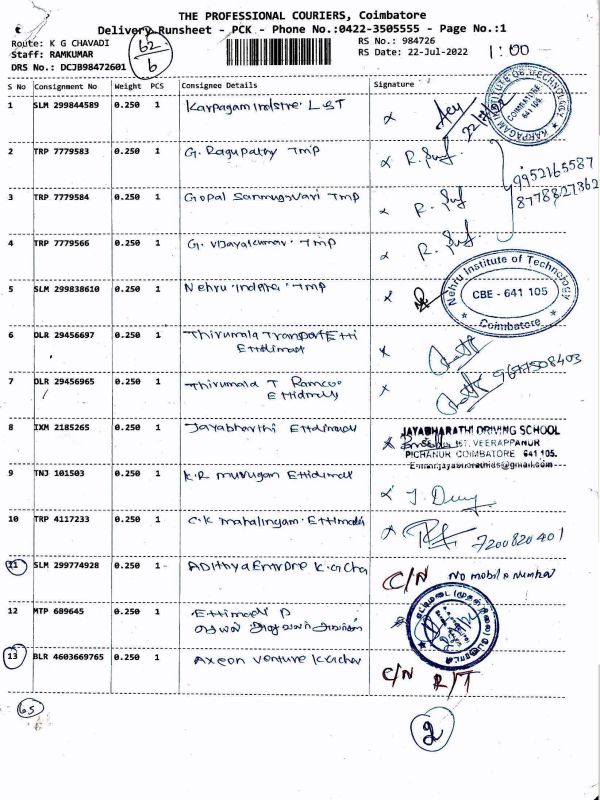 THE PROFESSIONAL COURIERS, Coimbatore
Delivery Runsheet - PCK - Phone No.:0422-3505555 - Page No.:1
Route: K G CHAVADI
Staff: RAMKUMAR
DRS No.: DCJB98472601
62/6
RS No.: 984726
RS Date: 22-Jul-2022
1:00
S No Consignment No Weight PCS Consignee Details Signature
1 SLM 299844589 0.250 1 Karpagam
KARPAGAM INSTITUTE OF TECHNOLOGY
COIMBATORE
641 105
2 TRP 7779583 0.250 1 G. Ragupathy Tmp
3 TRP 7779584 0.250 1 Gopal Sanmugavari Tmp
9952165587
8778827362
4 TRP 7779566 0.250 1 G. Vijayakumar Tmp
5 SLM 299838610 0.250 1 Nehru Tmp
Nehru Institute of Technology
CBE - 641 105
Coimbatore
6 DLR 29456697 0.250 1 Thirumala Transport Etti
7 DLR 29456965 0.250 1 Thirumala T
8 IXM 2185265 0.250 1 Jayabharthi
JAYABHARATHI DRIVING SCHOOL
VEERAPPANUR
PICHANUR COIMBATORE 641 105.
9 TNJ 101503 0.250 1 K.R Murugan
10 TRP 4117233 0.250 1 C.K Mahalingam Ettimadi
7200820401
11 SLM 299774928 0.250 1 Adithya
C/N No mobile number
12 MTP 689645 0.250 1 Ettimadi P
13 BLR 4603669765 0.250 1 Axeon Venture
C/N R/T
65
2